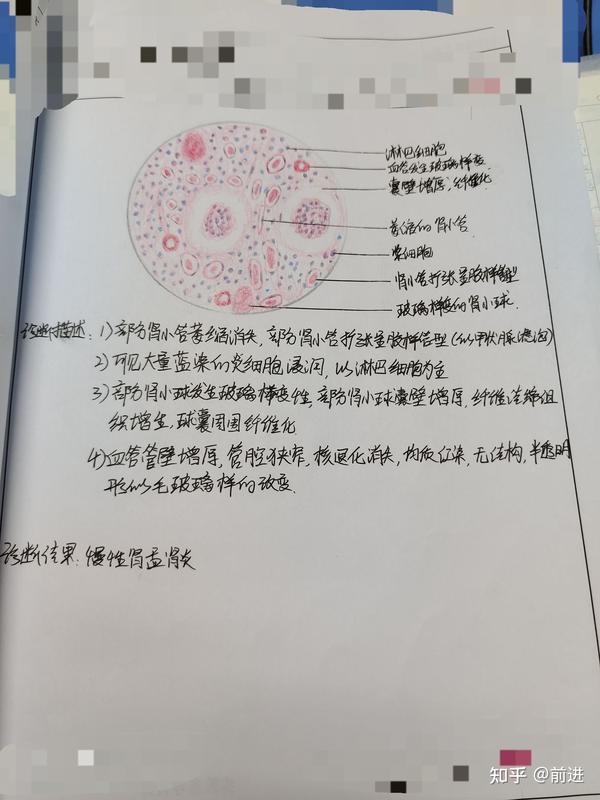 淋巴细胞
血管发生玻璃样变
囊壁增厚,纤维化
萎缩的肾小管
浆细胞
肾小管扩张呈胶样管型
玻璃样变的肾小球
诊断描述: 1)部分肾小管萎缩消失,部分肾小管扩张呈胶样管型(似甲状腺滤泡)
2)可见大量蓝染的炎细胞浸润,以淋巴细胞为主
3)部分肾小球发生玻璃样变性,部分肾小球囊壁增厚,纤维结缔组
织增生,球囊周围纤维化
4)血管管壁增厚,管腔狭窄,核退化消失,均质红染,无结构,半透明
形似毛玻璃样的改变.
诊断结果: 慢性肾盂肾炎
知乎 @前进